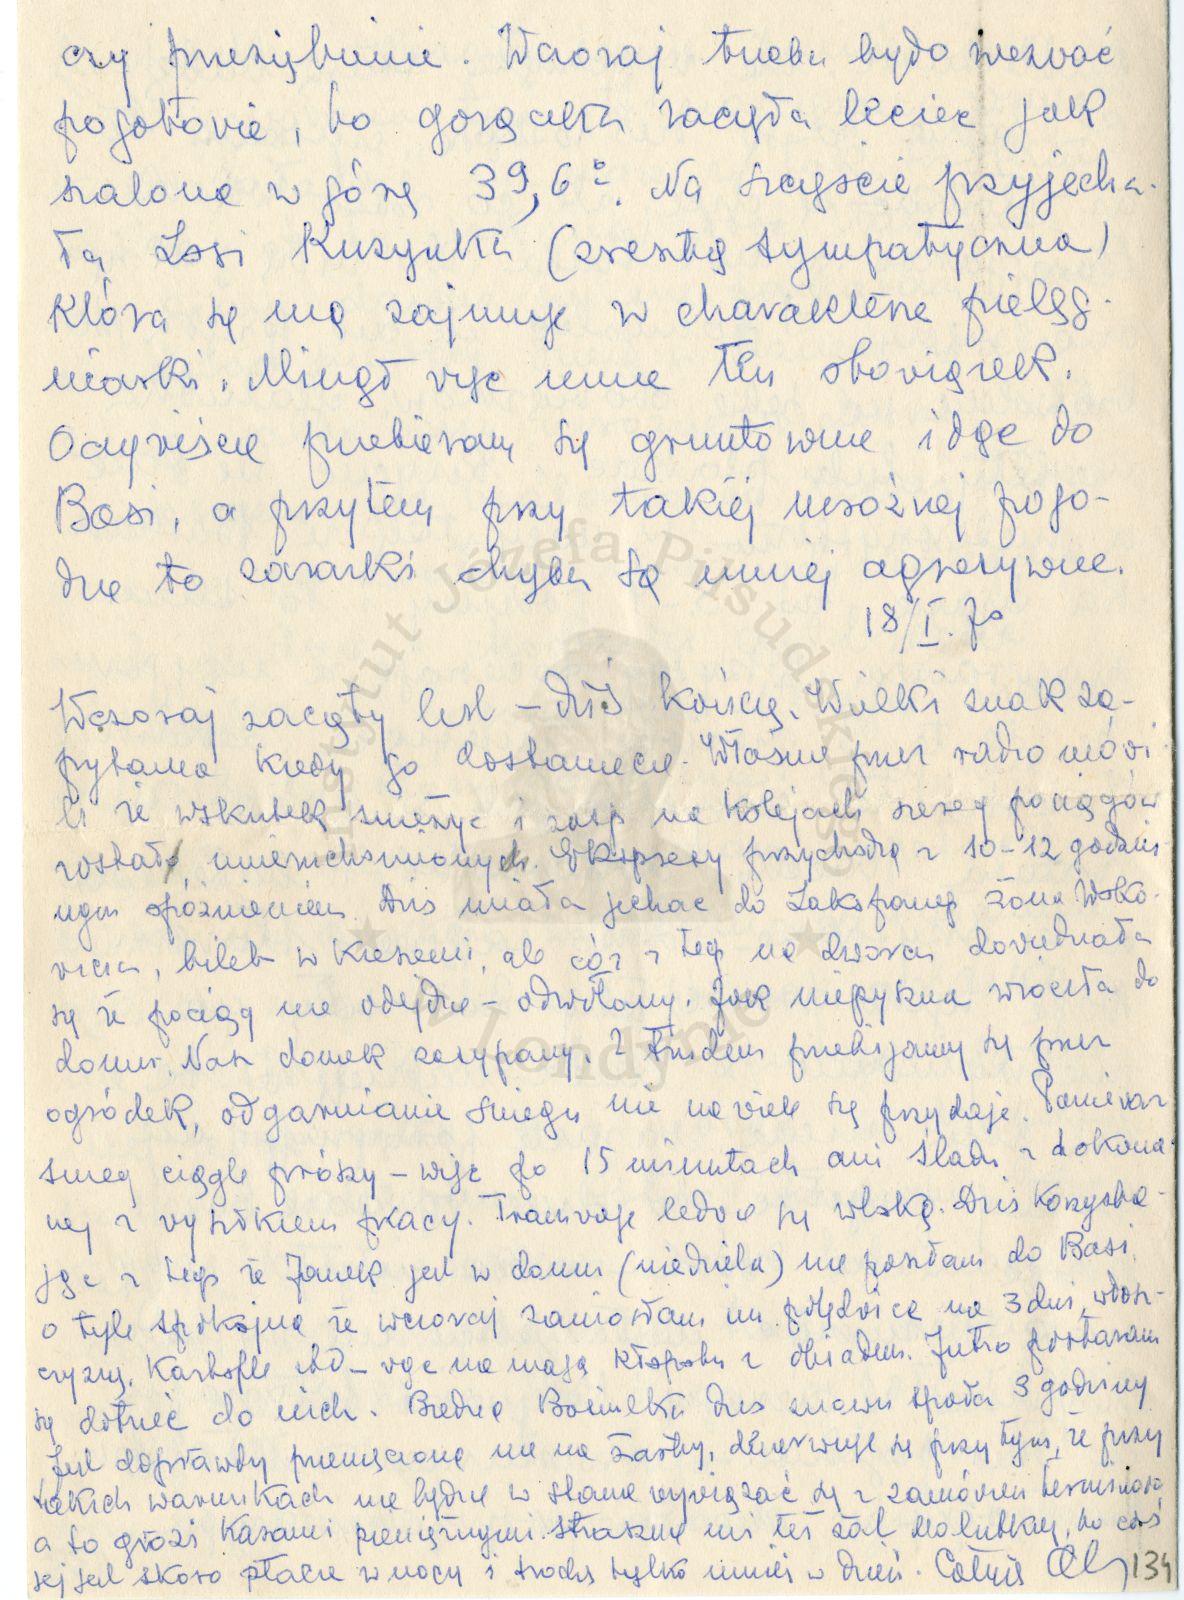 czy przeziębienie. Wczoraj trzeba było wezwać
pogotowie, bo gorączka zaczęła lecieć jak
szalona w górę 39,6°. Na szczęście przyjecha-
ła Zosi kuzynka (zresztą sympatyczna)
która się nią zajmuje w charakterze pielęg-
niarki. Minął więc mnie ten obowiązek.
Oczywiście przebieram się gruntownie idąc do
Basi, a przytem przy takiej mroźnej pogo-
dzie to zarazki chyba są mniej agresywne.
18/I. 70
Wczoraj zaczęty list – dziś kończę. Wielki znak za-
pytania kiedy go dostaniecie. Właśnie przez radio mówi-
li że wskutek śnieżyc i zasp na kolejach szereg pociągów
zostało unieruchomionych. Ekspresy przychodzą z 10-12 godzin-
nym opóźnieniem. Dziś miała jechać do Zakopanego żona
bilet w kieszeni, ale cóż z tego na dworcu dowiedziała
się że pociąg nie odejdzie – odwołany. Jak niepyszna wróciła do
domu. Nasz domek zasypany. Z trudem przebijamy się przez
ogródek, odgarnianie śniegu nie na wiele się przydaje. Ponieważ
śnieg ciągle prószy – więc po 15 minutach ani śladu z dokona-
nej z wysiłkiem pracy. Tramwaje ledwie się wloką. Dziś korzysta-
jąc z tego że Janek jest w domu (niedziela) nie poszłam do Basi
o tyle spokojna że wczoraj zaniosłam im polędwicę na 3 dni, włosz-
czyznę, kartofle itd – więc nie mają kłopotu z obiadem. Jutro postaram
się dotrzeć do nich. Biedna dziś znowu spała 3 godziny
Jest doprawdy przemęczona nie na żarty, denerwuje się przy tym, że przy
takich warunkach nie będzie w stanie wywiązać się z zamówień terminowo
a to grozi karami pieniężnymi. Strasznie mi też żal malutkiej, bo coś
jej jest skoro płacze w nocy i trochę tylko mniej w dzień. Całuję
134
Instytut Józefa Piłsudskiego
w Londynie